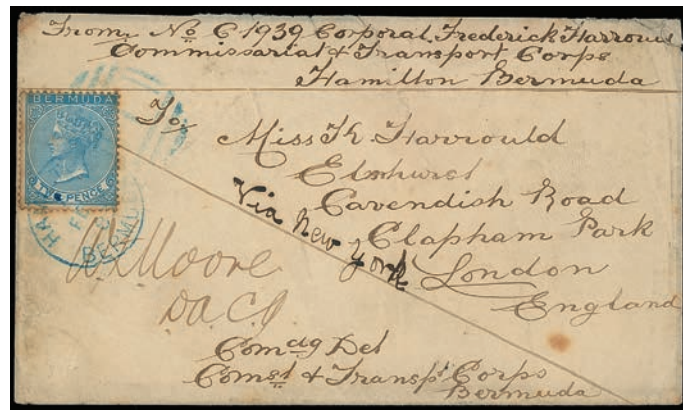 From, No C 1939 Corporal Frederick Harrould
Commissariat & Transport Corps
Hamilton Bermuda
BERMUDA
TWO PENCE
To,
Miss K Harrould
Elmhurst
Cavendish Road
Clapham Park
London
England
Via New York
HA
FE
BERMU
Moore
D.A.C.G
Comdg Det
Comst & Transpt Corps
Bermuda